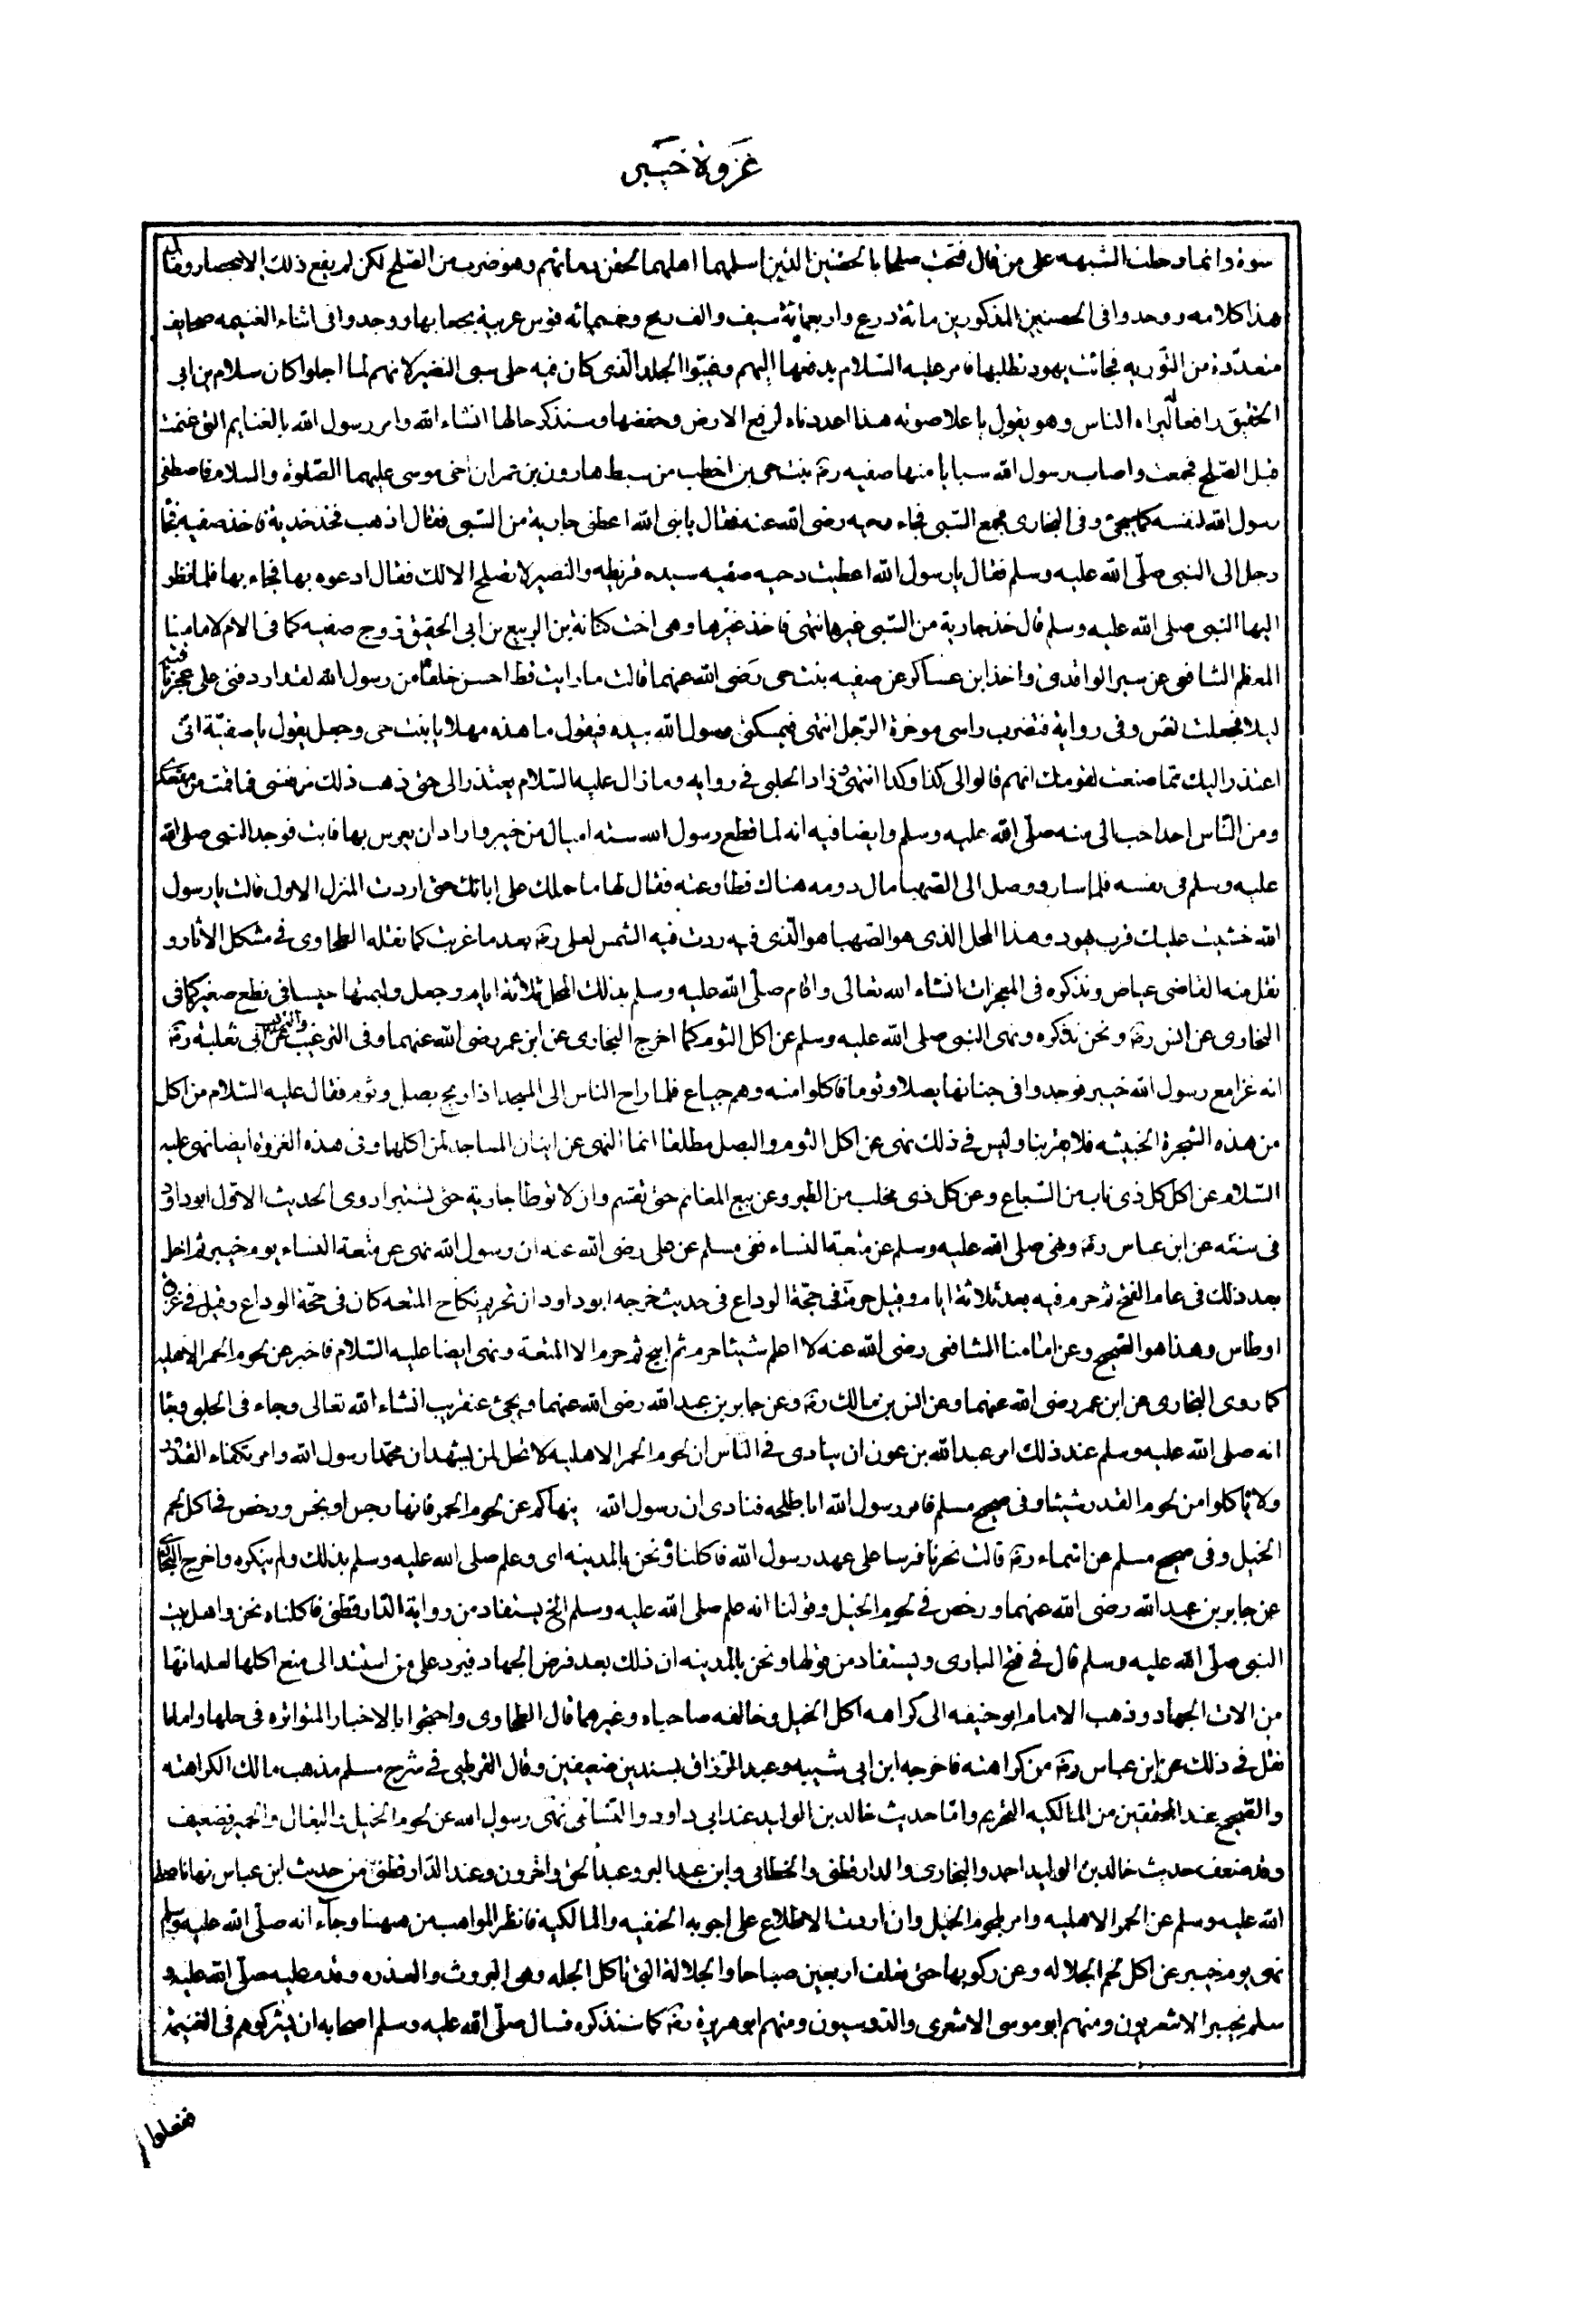 غزوة خيبر
سوة وانما دخلت الشبهه على من قال فتحت صلحا بالحصنين الذين اسلمهما اهلهما لحقن دمائهم وهو ضرب من الصلح لكن لم يقع ذلك الا بحصار وقتال
هذا كلامه ووجدوا فى الحصنين المذكورين مائة درع واربعمائة سيف والف رمح وخمسمائه قوس عربية بجعابها ووجدوا فى اثناء الغنيمه صحايف
متعددة من التورية فجائت يهود تطلبها فامر عليه السلام بدفعها اليهم وغيبوا الجلد الذى كان فيه حلى بنى النضير لانهم لما اجلوا كان سلام بن ابى
الحقيق رافعا ليراه الناس وهو يقول باعلا صوته هذا اعددناه لرفع الارض وخفضها وسنذكر حالها انشاء الله وامر رسول الله بالغنايم التى غنمت
قبل الصلح فجمعت واصاب رسول الله سبايا منها صفيه رضه بنت حى بن اخطب من سبط هارون بن عمران اخى موسى عليهما الصلوة والسلام فاصطفى
رسول الله لنفسه كما سيجئ وفى البخارى فجمع السبى فجاء دحيه رضى الله عنه فقال يا نبى الله اعطنى جارية من السبى فقال اذهب فخذ جارية فاخذ صفيه فجاء
رجل الى النبى صلى الله عليه وسلم فقال يا رسول الله اعطيت دحيه صفيه سيده قريظه والنضير لا تصلح الا لك فقال ادعوه بها فجاء بها فلما نظر
اليها النبى صلى الله عليه وسلم قال خذ جارية من السبى غيرها انتهى فاخذ غيرها وهى اخت كنانة بن الربيع بن ابى الحقيق زوج صفيه كما فى الام لامامنا
المعظم الشافعى عن سير الواقدى واخذ ابن عساكر عن صفيه بنت حى رضى الله عنهما قالت ما رايت قط احسن خلقا من رسول الله لقد اردفنى على عجز ناقته
ليلا فجعلت نفس وفى رواية فتضرب راسى موخرة الرحل انتهى فيمسكنى رسول الله بيده فيقول ما هذه مهلا يا بنت حى وجعل يقول يا صفية انى
اعتذر اليك مما صنعت لقومك انهم قالوا لى كذا وكذا انتهى وزاد الحلبى فى روايه وما زال عليه السلام يعتذر الى حتى ذهب ذلك من نفسى فما قمت من مقعدى
ومن الناس احدا احب الى منه صلى الله عليه وسلم وايضا فيه انه لما قطع رسول الله سته اميال من خيبر واراد ان يعرس بها فابت فوجد النبى صلى الله
عليه وسلم فى نفسه فلما سار ووصل الى الصهبا مال دومه هناك فطاوعته فقال لها ما حملك على ابائك حتى اردت المنزل الاول قالت يا رسول
الله خشيت عليك قرب يهود وهذا المحل الذى هو الصهبا هو الذى فيه ردت فيه الشمس لعلى رضه بعد ما غربت كما نقله الطحاوى فى مشكل الاثار و
نقل منه القاضى عياض ونذكره فى المعجزات انشاء الله تعالى واقام صلى الله عليه وسلم بذلك المحل ثلاثة ايام وجعل وليمتها حيسا فى نطع صغير كما فى
البخارى عن انس رضه ونحن نذكره ونهى النبى صلى الله عليه وسلم عن اكل الثوم كما اخرج البخارى عن ابن عمر رضى الله عنهما وفى الترغيب والترهيب عن ابى ثعلبه رضه
انه غزا مع رسول الله خيبر فوجدوا فى جنانها بصلا وثوما فاكلوا منه وهم جياع فلما راح الناس الى المسجد اذا ريح بصل وثوم فقال عليه السلام من اكل
من هذه الشجرة الخبيثه فلا يقربنا وليس فى ذلك نهى عن اكل الثوم والبصل مطلقا انما النهى عن اتيان المساجد لمن اكلها وفى هذه الغزوة ايضا نهى عليه
السلام عن اكل كل ذى ناب من السباع وعن كل ذى مخلب من الطير وعن بيع المغانم حتى تقسم وان لا توطا جارية حتى تستبرا روى الحديث الاول ابو داود
فى سننه عن ابن عباس رضه ونهى صلى الله عليه وسلم عن متعة النساء ففى مسلم عن على رضى الله عنه ان رسول الله نهى عن متعة النساء يوم خيبر ثم احل
بعد ذلك فى عام الفتح ثم حرم فيه بعد ثلاثة ايام وقيل حرمة فى حجة الوداع فى حديث خرجه ابو داود ان تحريم نكاح المتعه كان فى حجة الوداع وقيل فى غزوة
اوطاس وهذا هو الصحيح وعن امامنا الشافعى رضى الله عنه لا اعلم شيئا حرم ثم ابيح ثم حرم الا المتعة ونهى ايضا عليه السلام فاخبر عن لحوم الحمر الاهليه
كما روى البخارى عن ابن عمر رضى الله عنهما وعن انس بن مالك رضه وعن جابر بن عبد الله رضى الله عنهما ويجئ عنقريب انشاء الله تعالى وجاء فى الحلبى
انه صلى الله عليه وسلم عند ذلك امر عبد الله بن عون ان ينادى فى الناس ان لحوم الحمر الاهليه لا تحل لمن يشهد ان محمدا رسول الله وامر بكفاء القدور
ولا ياكلوا من لحوم القدر شيئا وفى صحيح مسلم فامر رسول الله ابا طلحه فنادى ان رسول الله ينهاكم عن لحوم الحمر فانها رجس او نجس ورخص فى اكل لحم
الخيل وفى صحيح مسلم عن اسماء رضه قالت نحرنا فرسا على عهد رسول الله فاكلنا ونحن بالمدينه اى وعلم صلى الله عليه وسلم بذلك ولم ينكره واخرج البخارى
عن جابر بن عبد الله رضى الله عنهما ورخص فى لحوم الخيل وقولنا انه علم صلى الله عليه وسلم الخ يستفاد من رواية الدارقطنى فاكلناه نحن واهل بيت
النبى صلى الله عليه وسلم قال فى فتح البارى ويستفاد من قولها ونحن بالمدينه ان ذلك بعد فرض الجهاد فيرد على من استند الى منع اكلها لعله انها
من الات الجهاد وذهب الامام ابو حنيفه الى كراهه اكل الخيل وخالفه صاحباه وغيرهما قال الطحاوى واحتجوا بالاخبار المتواتره فى حلها واما ما
نقل فى ذلك عن ابن عباس رضه من كراهته فاخرجه ابن ابى شيبه وعبد الرزاق بسندين ضعيفين وقال القرطبى فى شرح مسلم مذهب مالك الكراهته
والصحيح عند المحققين من المالكيه التحريم واما حديث خالد بن الوليد عند ابى داود والنسائى نهى رسول الله عن لحوم الخيل والبغال والحمير فضعيف
وقد ضعف حديث خالد بن الوليد احمد والبخارى والدارقطنى والخطابى وابن عبد البر وعبد الحق واخرون وعند الدارقطنى من حديث ابن عباس نهانا صلى
الله عليه وسلم عن الحمر الاهليه وامر بلحوم الخيل وان اردت الاطلاع على اجوبه الحنفيه والمالكية فانظر المواهب من ههنا وجاء انه صلى الله عليه وسلم
نهى يوم خيبر عن اكل لحم الجلاله وعن ركوبها حتى تعلف اربعين صباحا والجلالة التى تاكل الجله وهى الروث والعذره وقدم عليه صلى الله عليه و
سلم بخيبر الاشعريون ومنهم ابو موسى الاشعرى والدوسيون ومنهم ابو هريرة رضه كما سنذكره فسال صلى الله عليه وسلم اصحابه ان يشركوهم فى الغنيمة
ففعلوا